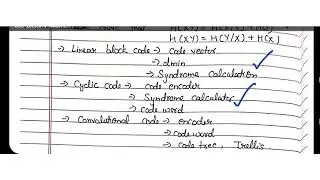 H(XY) = H(Y/X) + H(X)
→ Linear block code → code vector
→ dmin
→ Syndrome calculation
→ Cyclic code → code encoder
→ Syndrome calculater
→ code word
→ Convolutional code → encoder
→ code word
→ code tree, Trellis